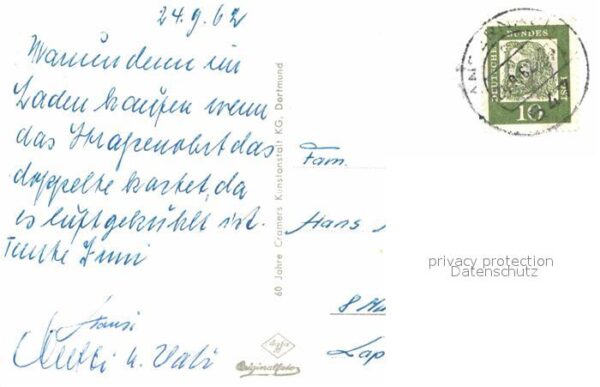 24.9.62
Warum denn im
Laden kaufen wenn
das Straßenobst das
doppelte kostet, da
es luftgekühlt ist.
Tante
Hansi
Mutti u. Vati
60 Jahre Cramers Kunstanstalt KG, Dortmund
Agfa
Originalfoto
DEUTSCHE BUNDESPOST
10
Fam.
Hans
8 Mü
privacy protection
Datenschutz